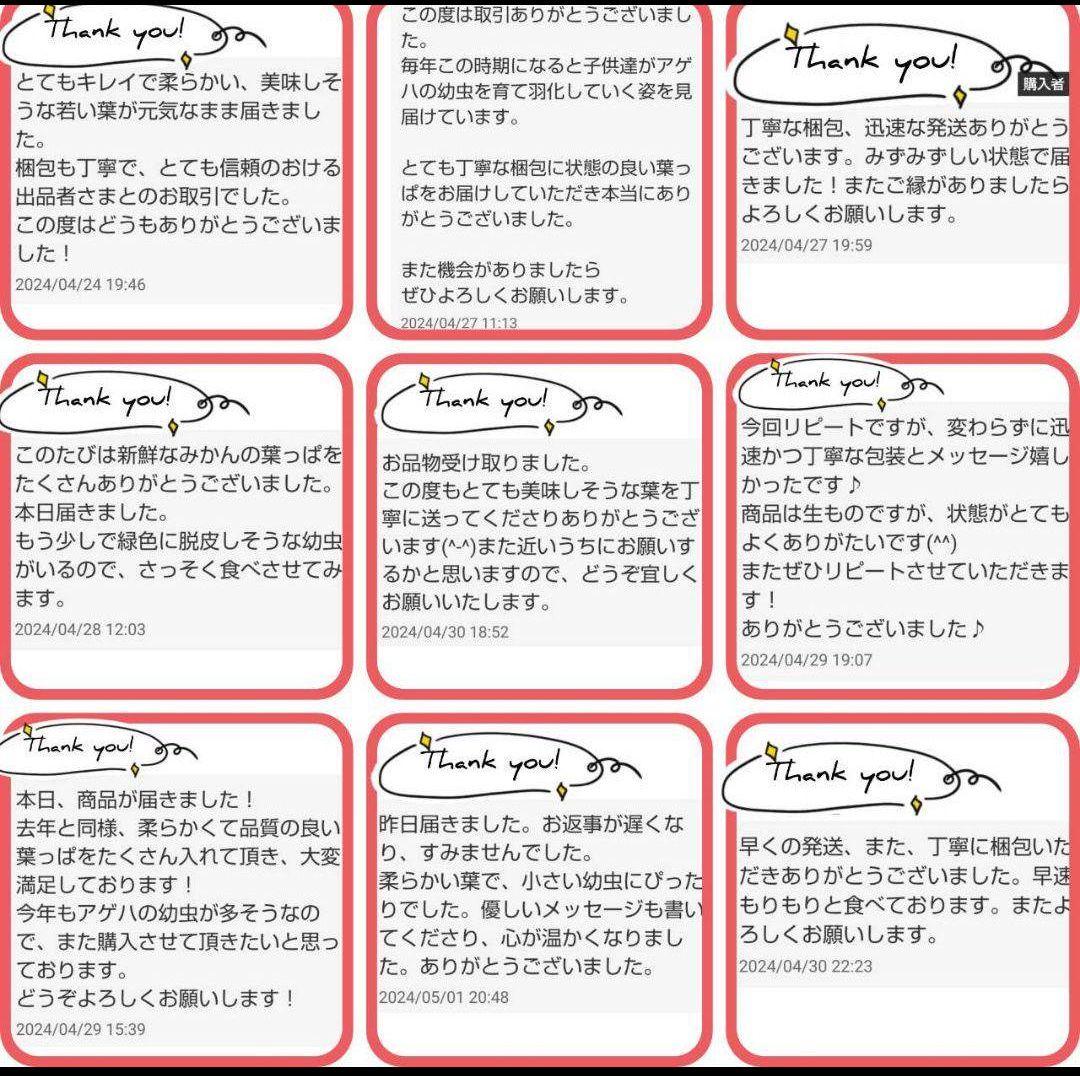 Thank you!
とてもキレイで柔らかい、美味しそ
うな若い葉が元気なまま届きまし
た。
梱包も丁寧で、とても信頼のおける
出品者さまとのお取引でした。
この度はどうもありがとうございま
した！
2024/04/24 19:46
この度は取引ありがとうございまし
た。
毎年この時期になると子供達がアゲ
ハの幼虫を育て羽化していく姿を見
届けています。
とても丁寧な梱包に状態の良い葉っ
ぱをお届けしていただき本当にあり
がとうございました。
また機会がありましたら
ぜひよろしくお願いします。
2024/04/27 11:13
Thank you!
購入者
丁寧な梱包、迅速な発送ありがとう
ございます。みずみずしい状態で届
きました！またご縁がありましたら
よろしくお願いします。
2024/04/27 19:59
Thank you!
このたびは新鮮なみかんの葉っぱを
たくさんありがとうございました。
本日届きました。
もう少しで緑色に脱皮しそうな幼虫
がいるので、さっそく食べさせてみ
ます。
2024/04/28 12:03
Thank you!
お品物受け取りました。
この度もとても美味しそうな葉を丁
寧に送ってくださりありがとうござ
います(^-^)また近いうちにお願いす
るかと思いますので、どうぞ宜しく
お願いいたします。
2024/04/30 18:52
Thank you!
今回リピートですが、変わらずに迅
速かつ丁寧な包装とメッセージ嬉し
かったです♪
商品は生ものですが、状態がとても
よくありがたいです(^^)
またぜひリピートさせていただきま
す！
ありがとうございました♪
2024/04/29 19:07
Thank you!
本日、商品が届きました！
去年と同様、柔らかくて品質の良い
葉っぱをたくさん入れて頂き、大変
満足しております！
今年もアゲハの幼虫が多そうなの
で、また購入させて頂きたいと思っ
ております。
どうぞよろしくお願いします！
2024/04/29 15:39
Thank you!
昨日届きました。お返事が遅くな
り、すみませんでした。
柔らかい葉で、小さい幼虫にぴった
りでした。優しいメッセージも書い
てくださり、心が温かくなりまし
た。ありがとうございました。
2024/05/01 20:48
Thank you!
早くの発送、また、丁寧に梱包いた
だきありがとうございました。早速
もりもりと食べております。またよ
ろしくお願いします。
2024/04/30 22:23